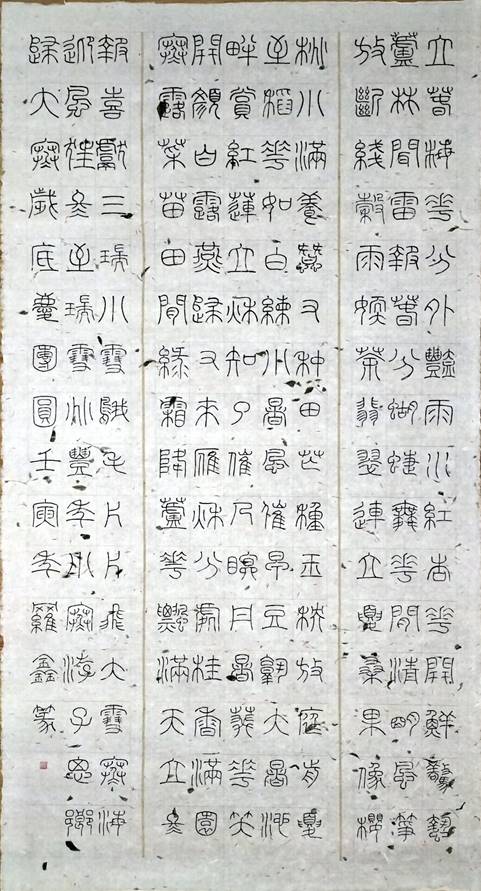 立春梅花分外豔雨水紅杏花開鮮驚蟄
蘆林聞雷報春分蝴蝶舞花間清明風箏
放斷綫穀雨嫩茶翡翠連立夏桑果像櫻
桃小滿養蠶又種田芒種玉秧放庭前夏
至稻花如白練小暑風催早豆熟大暑池
畔賞紅蓮立秋知了催人眠處暑葵花笑
開顏白露燕歸又來雁秋分丹桂香滿園
寒露菜苗田間綠霜降蘆花飄滿天立冬
報喜獻三瑞小雪鵝毛片片飛大雪寒梅
迎風狂冬至瑞雪兆豐年小寒游子思鄉
歸大寒歲底慶團圓壬寅年羅鑫篆